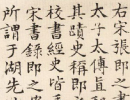 右宋張即之
太子太傅直
其蹟史稱即
宋書錄即之
校書經史皆
所謂于湖先